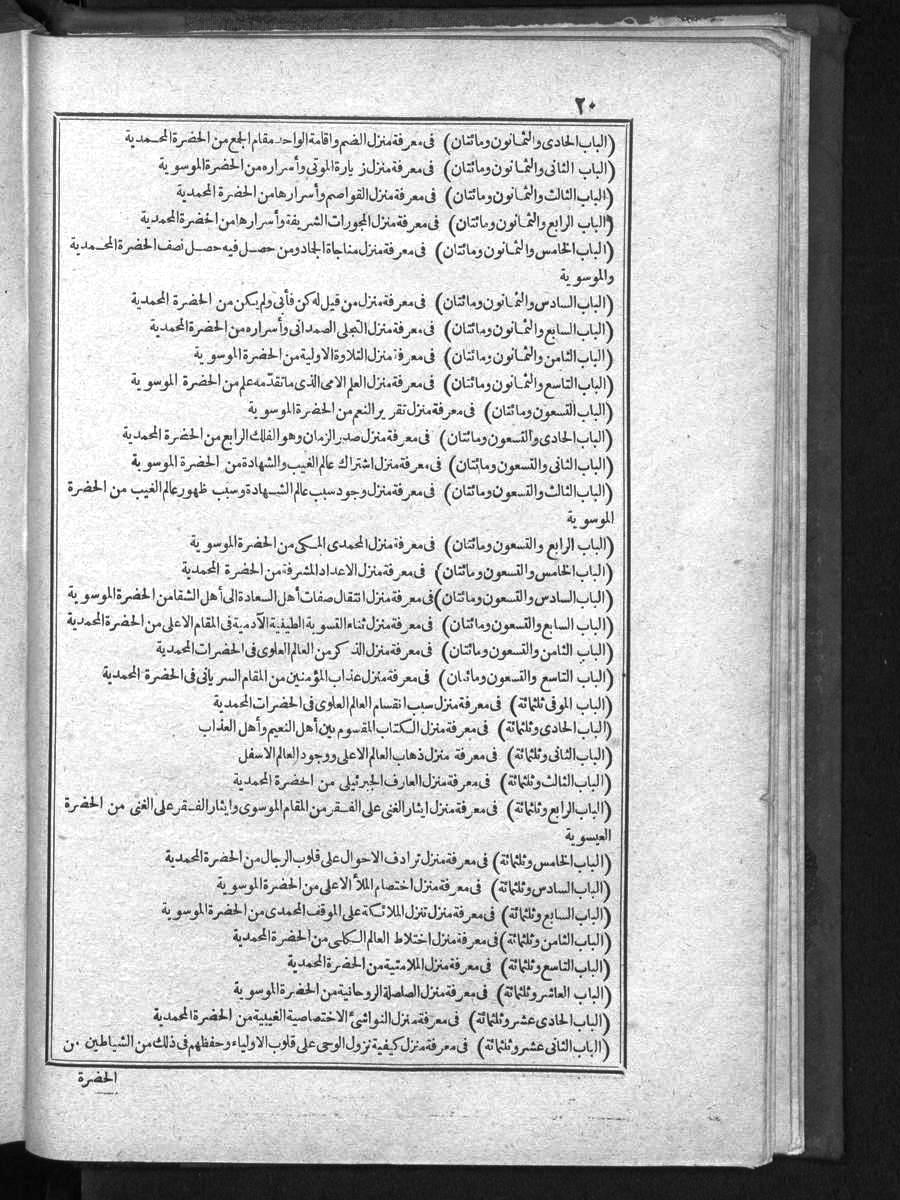 ٢٠
(الباب الحادى والثمانون ومائتان) فى معرفة منزل الضم واقامة الواحد مقام الجمع من الحضرة المحمدية
(الباب الثانى والثمانون ومائتان) فى معرفة منزل زيارة الموتى وأسراره من الحضرة الموسوية
(الباب الثالث والثمانون ومائتان) فى معرفة منزل القواصم وأسرارها من الحضرة المحمدية
(الباب الرابع والثمانون ومائتان) فى معرفة منزل المجورات الشريفة وأسرارها من الحضرة المحمدية
(الباب الخامس والثمانون ومائتان) فى معرفة منزل مناجاة الجاد ومن حصل فيه حصل نصف الحضرة المحمدية
والموسوية
(الباب السادس والثمانون ومائتان) فى معرفة منزل من قيل له كن فأبى ولم يكن من الحضرة المحمدية
(الباب السابع والثمانون ومائتان) فى معرفة منزل التجلى الصمدانى وأسراره من الحضرة المحمدية
(الباب الثامن والثمانون ومائتان) فى معرفة منزل التلاوة الاولية من الحضرة الموسوية
(الباب التاسع والثمانون ومائتان) فى معرفة منزل العلم الامى الذى ماتقدّمه علم من الحضرة الموسوية
(الباب التسعون ومائتان) فى معرفة منزل تقرير النعم من الحضرة الموسوية
(الباب الحادى والتسعون ومائتان) فى معرفة منزل صدر الزمان وهو الفلك الرابع من الحضرة المحمدية
(الباب الثانى والتسعون ومائتان) فى معرفة منزل اشتراك عالم الغيب والشهادة من الحضرة الموسوية
(الباب الثالث والتسعون ومائتان) فى معرفة منزل وجود سبب عالم الشهادة وسبب ظهور عالم الغيب من الحضرة
الموسوية
(الباب الرابع والتسعون ومائتان) فى معرفة منزل المحمدى المكى من الحضرة الموسوية
(الباب الخامس والتسعون ومائتان) فى معرفة منزل الاعداد المشرفة من الحضرة المحمدية
(الباب السادس والتسعون ومائتان) فى معرفة منزل انتقال صفات أهل السعادة الى أهل الشقا من الحضرة الموسوية
(الباب السابع والتسعون ومائتان) فى معرفة منزل ثناء التسوية الطينية الآدمية فى المقام الاعلى من الحضرة المحمدية
(الباب الثامن والتسعون ومائتان) فى معرفة منزل الذكر من العالم العلوى فى الحضرات المحمدية
(الباب التاسع والتسعون ومائتان) فى معرفة منزل عذاب المؤمنين من المقام السريانى فى الحضرة المحمدية
(الباب الموفى ثلثمائة) فى معرفة منزل سبب انقسام العالم العلوى فى الحضرات المحمدية
(الباب الحادى وثلثمائة) فى معرفة منزل الكتاب المقسوم بين أهل النعيم وأهل العذاب
(الباب الثانى وثلثمائة) فى معرفة منزل ذهاب العالم الاعلى ووجود العالم الاسفل
(الباب الثالث وثلثمائة) فى معرفة منزل العارف الجبرئيلى من الحضرة المحمدية
(الباب الرابع وثلثمائة) فى معرفة منزل ايثار الغنى على الفقر من المقام الموسوى وايثار الفقر على الغنى من الحضرة
العيسوية
(الباب الخامس وثلثمائة) فى معرفة منزل ترادف الاحوال على قلوب الرجال من الحضرة المحمدية
(الباب السادس وثلثمائة) فى معرفة منزل اختصام الملأ الاعلى من الحضرة الموسوية
(الباب السابع وثلثمائة) فى معرفة منزل تنزل الملائكة على الموقف المحمدى من الحضرة الموسوية
(الباب الثامن وثلثمائة) فى معرفة منزل اختلاط العالم الكلى من الحضرة المحمدية
(الباب التاسع وثلثمائة) فى معرفة منزل الملامتية من الحضرة المحمدية
(الباب العاشر وثلثمائة) فى معرفة منزل الصلصلة الروحانية من الحضرة الموسوية
(الباب الحادى عشر وثلثمائة) فى معرفة منزل النواشئ الاختصاصية الغيبية من الحضرة المحمدية
(الباب الثانى عشر وثلثمائة) فى معرفة منزل كيفية نزول الوحى على قلوب الاولياء وحفظهم فى ذلك من الشياطين من
الحضرة